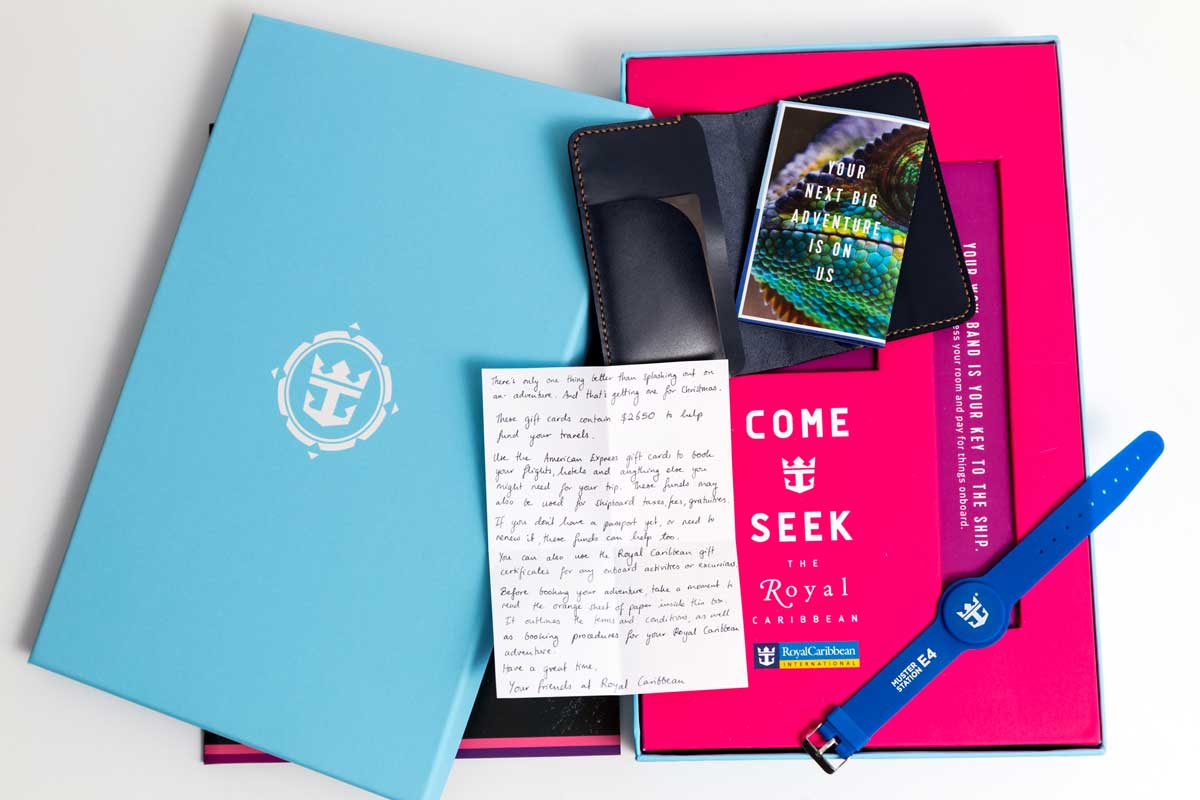 YOUR
NEXT BIG
ADVENTURE
IS ON
US
There's only one thing better than splashing out on
an adventure. And that's getting one for Christmas.
These gift cards contain $2650 to help
fund your travels.
Use the American Express gift cards to book
your flights, hotels and anything else you
might need for your trip. These funds may
also be used for shipboard taxes, fees, gratuities.
If you don't have a passport yet, or need to
renew it, these funds can help too.
You can also use the Royal Caribbean gift
certificates for any onboard activities or excursions.
Before booking your adventure, take a moment to
read the orange sheet of paper inside this box.
It outlines the terms and conditions, as well
as booking procedures for your Royal Caribbean
adventure.
Have a great time,
Your friends at Royal Caribbean
COME
SEEK
THE
Royal
CARIBBEAN
RoyalCaribbean
INTERNATIONAL
YOUR WOW BAND IS YOUR KEY TO THE SHIP.
your room and pay for things onboard.
MUSTER
STATION E4